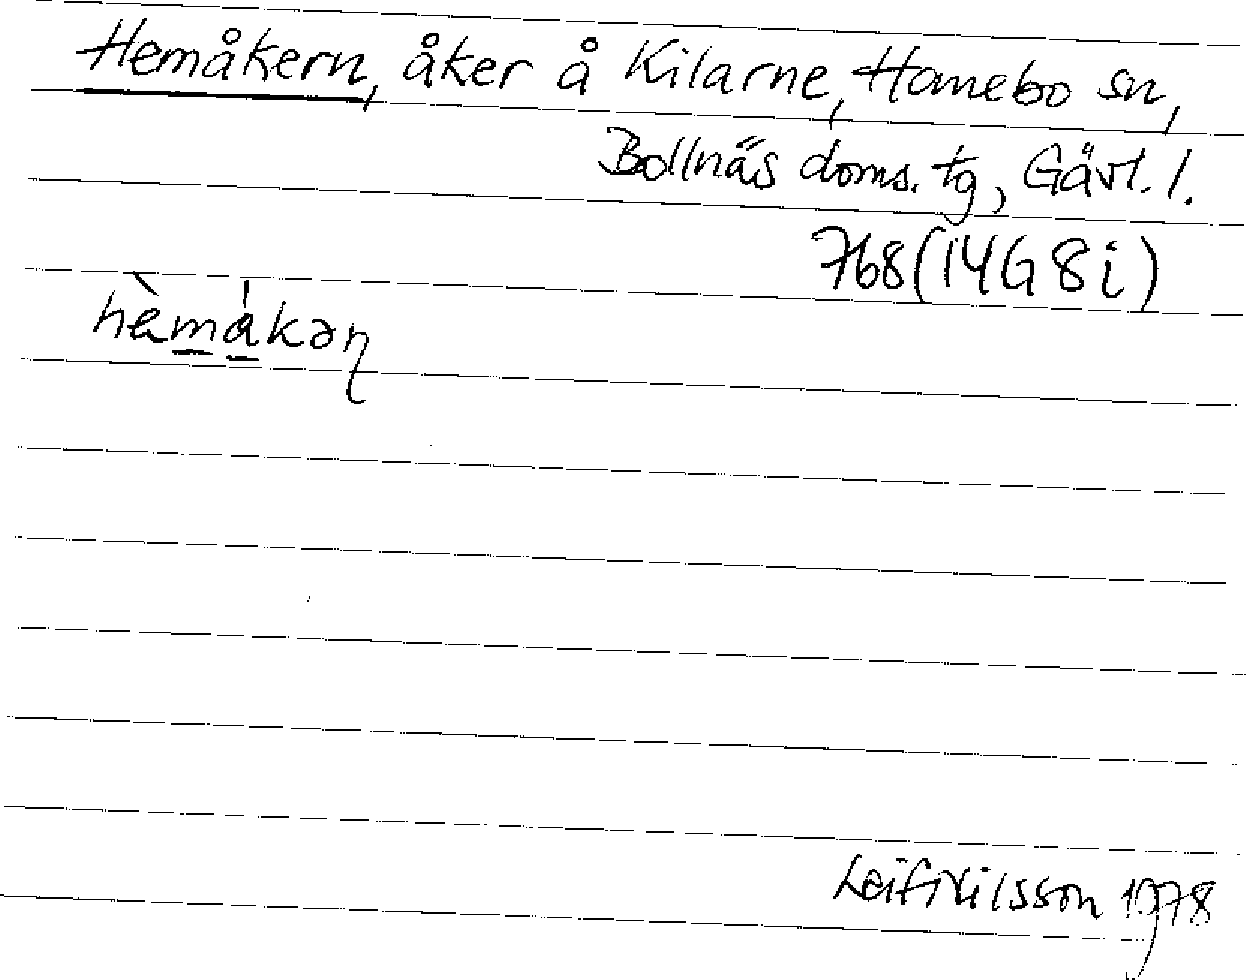 Hemåkern, åker å Kilarne, Hanebo sn,
Bollnäs doms. tg, Gävl. l.
768 (14G 8i)
hèmákəɳ
Leif Nilsson 1978